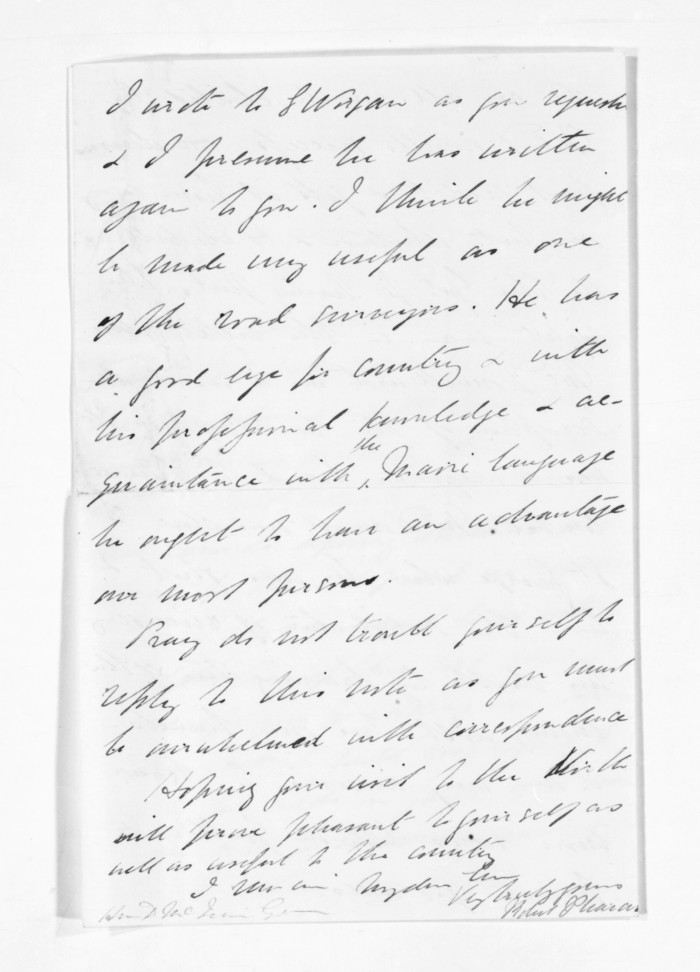 I wrote to G Worgan as you request
& I presume he has written
again to you. I think he might
be made very useful as one
of the road surveyors. He has
a good eye for country & with
his professional knowledge & ac-
quaintance with the Maori language
he ought to have an advantage
over most persons.
Pray do not trouble yourself to
reply to this note as you must
be overwhelmed with correspondence
Hoping your visit to the North
will prove pleasant to yourself as
well as useful to the country
I remain my dear Sir
Very truly yours
Robert
Hon D McLean